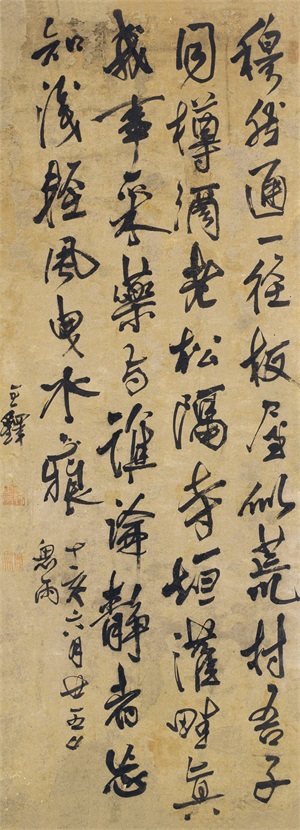 穆然通一徑板屋似荒村吾子
同樽酒老松隔寺垣灌畦真
我事采藥誰論靜者忘
知識輕風曳水痕
六月廿五夕
雨
王鐸